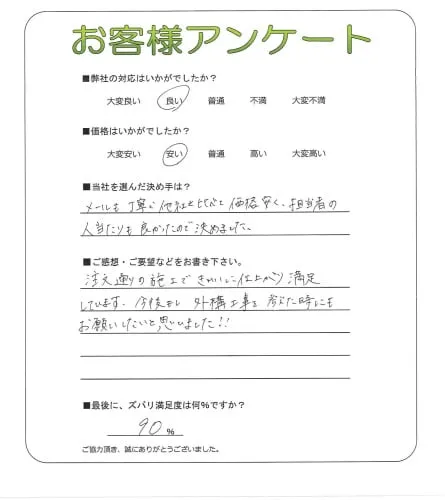 お客様アンケート
■弊社の対応はいかがでしたか?
大変良い 良い 普通 不満 大変不満
■価格はいかがでしたか?
大変安い 安い 普通 高い 大変高い
■当社を選んだ決め手は?
メールも丁寧で他社と比べて価格安く、担当者の
人当たりも良かたので決めました。
■ご感想・ご要望などをお書き下さい。
注文通りの施工できれいに仕上がり満足
しています。今後もし外構工事を考えた時にも
お願いしたいと思いました!!
■最後に、ズバリ満足度は何%ですか?
90 %
ご協力頂き、誠にありがとうございました。